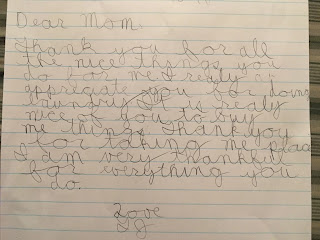 Dear Mom,
Thank you for all
the nice things you
do for me. I realy a
appregiate you for doing
laundry. It is realy
nice of you to buy
me things. Thank you
for taking me places
I am very thankful
for everything you
do.
Love
TJ